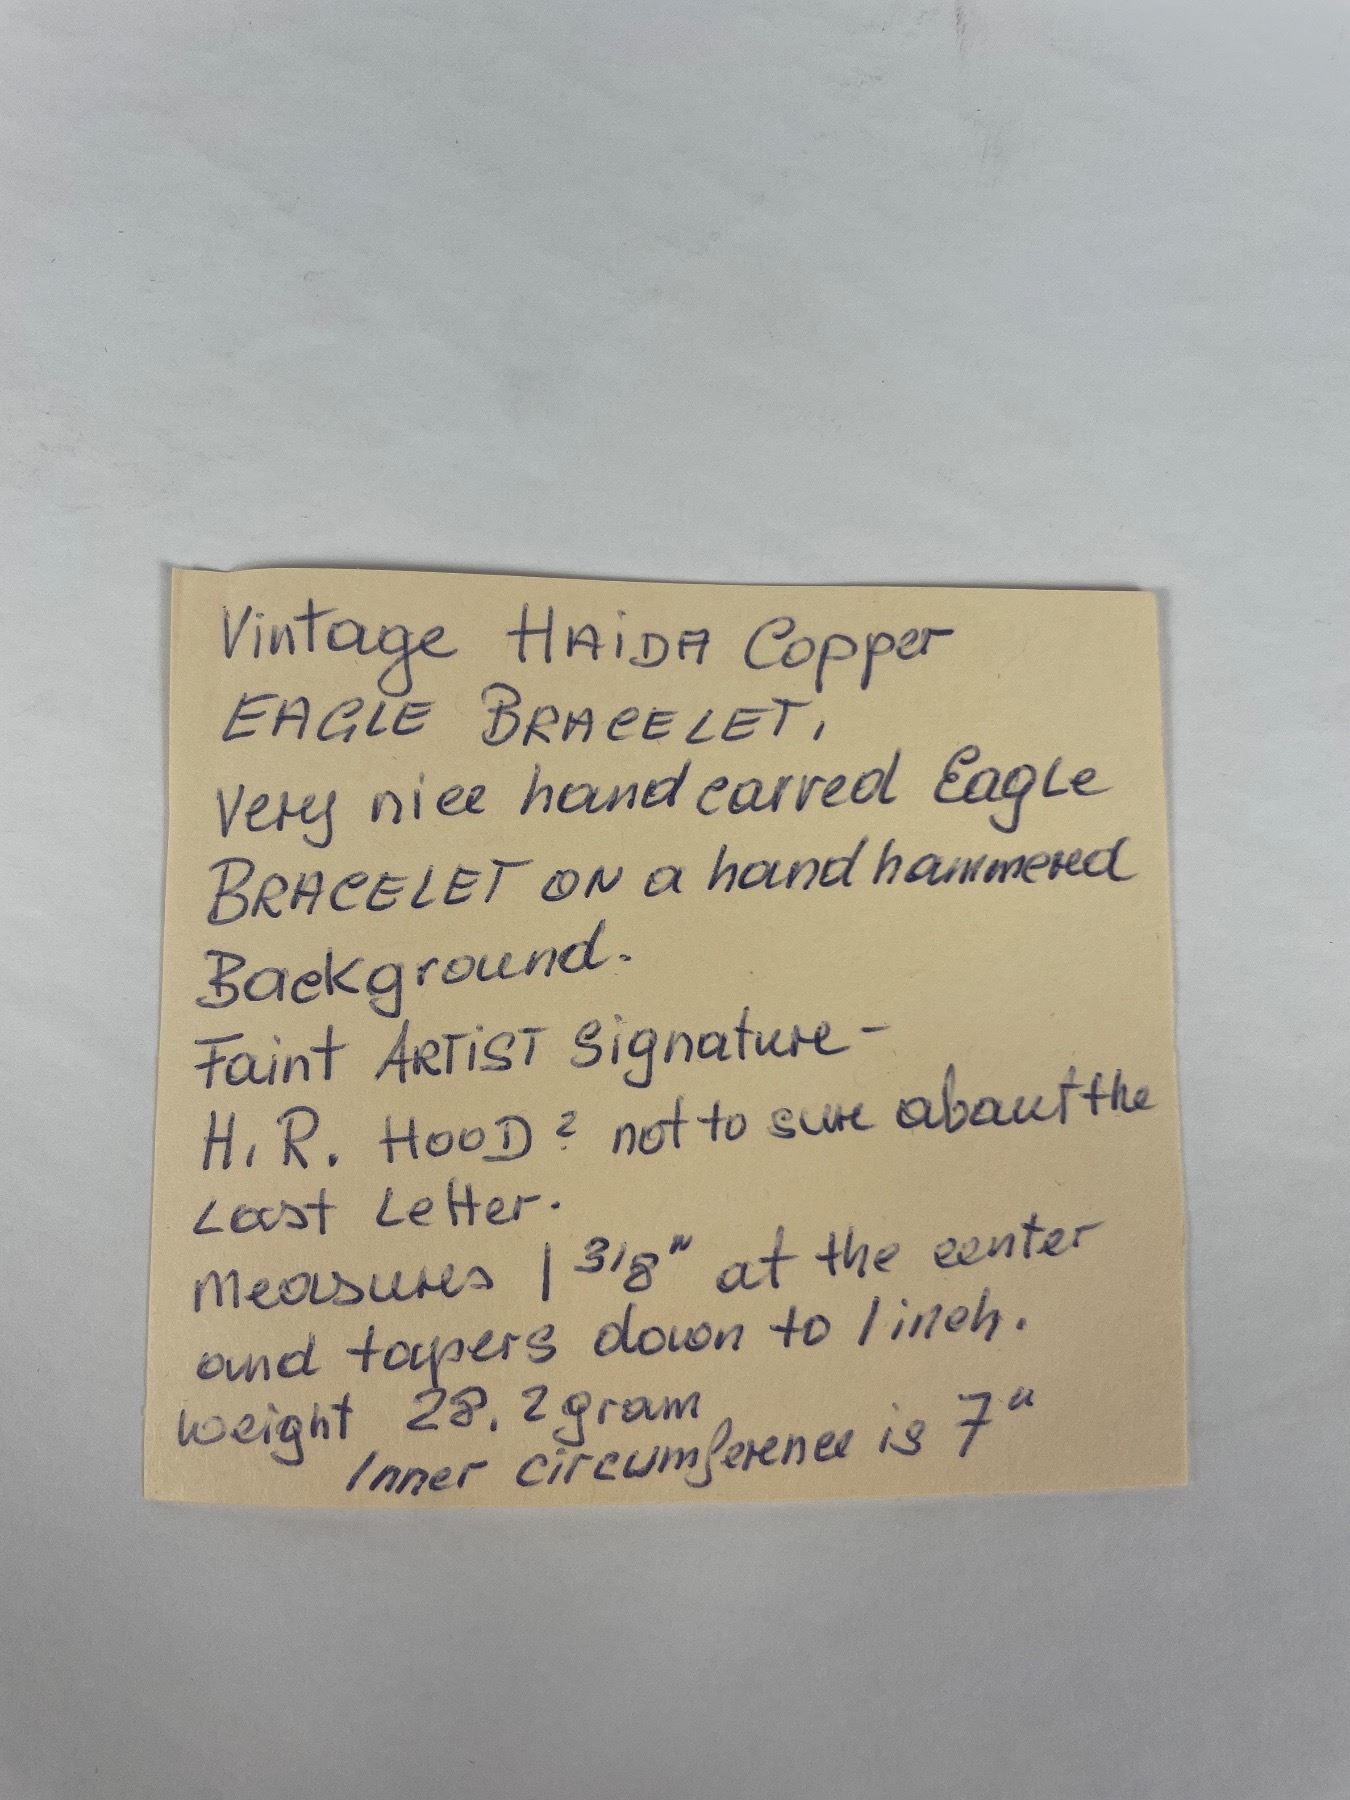 Vintage HAiDA Copper
EAGLE BRACELET,
Very nice hand carved Eagle
BRACELET ON a hand hammered
Background.
Faint ARTiST Signature-
H.R. HOOD? not to sure abaut the
Last Letter.
Measures 1 3/8" at the center
and tapers down to 1 inch.
weight 28.2 gram
Inner circumference is 7"